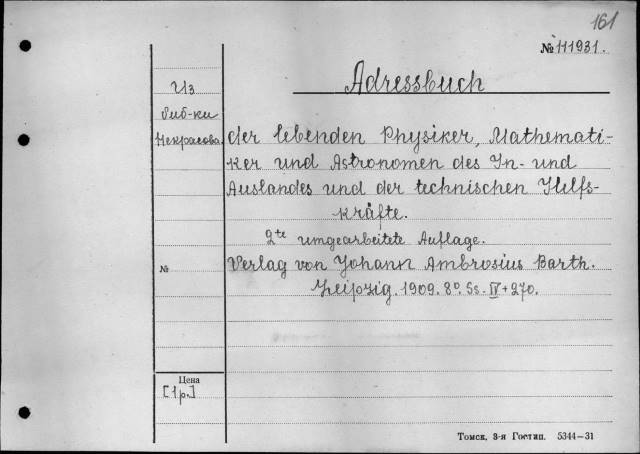 161
№ 111931.
Adressbuch
Из
биб-ки
Некрасова.
der lebenden Physiker, Mathemati-
ker und Astronomen des In- und
Auslandes und der technischen Hilfs-
kräfte.
2te umgearbeitete Auflage.
№
Verlag von Johann Ambrosius Barth.
Leipzig. 1909. 8°. Ss. IV + 270.
Цена
[1р.]
Томск, 3-я Гостип. 5344—31